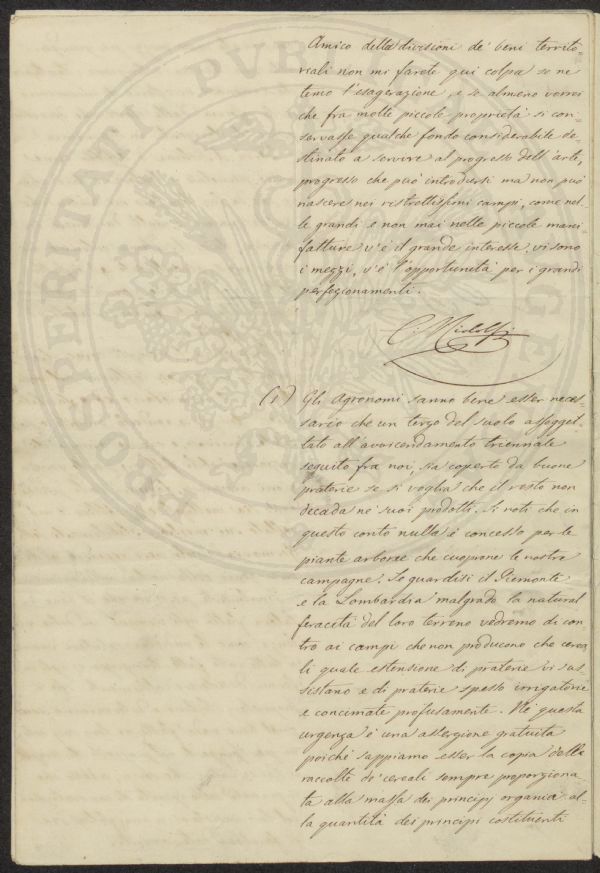 Amico della divisioni de' beni territo-
riali non mi farete qui colpa se ne
temo l'esagerazione, e se almeno vorrei
che fra molte piccole proprietà si con-
servasse qualche fondo considerabile de-
stinato a servire al progresso dell'arte,
progresso che può introdursi ma non può
nascere nei ristrettissimi campi, come nel-
le grandi e non mai nelle piccole mani-
fatture v'è il grande interesse, vi sono
i mezzi, v'è l'opportunità per i grandi
perfezionamenti.
C. Ridolfi
(1) Gli Agronomi sanno bene esser neces-
sario che un terzo del suolo assogget-
tato all'avvicendamento triennale
seguito fra noi, sia coperto da buone
praterie se si voglia che il resto non
decada ne' suoi prodotti. Si noti che in
questo conto nulla è concesso per le
piante arboree che cuoprono le nostre
campagne. Se guardisi il Piemonte
e la Lombardia malgrado la natural
feracità del loro terreno vedremo di con-
tro ai campi che non producono che cerea
li quale estensione di praterie vi sus-
sistano e di praterie spesso irrigatorie
e concimate profusamente. Nè questa
urgenza è una asserzione gratuita
poichè sappiamo esser la copia delle
raccolte de' cereali sempre proporziona-
ta alla massa dei principj organici al-
la quantità dei principi costituenti
PROSPERITATI PUBLICAE